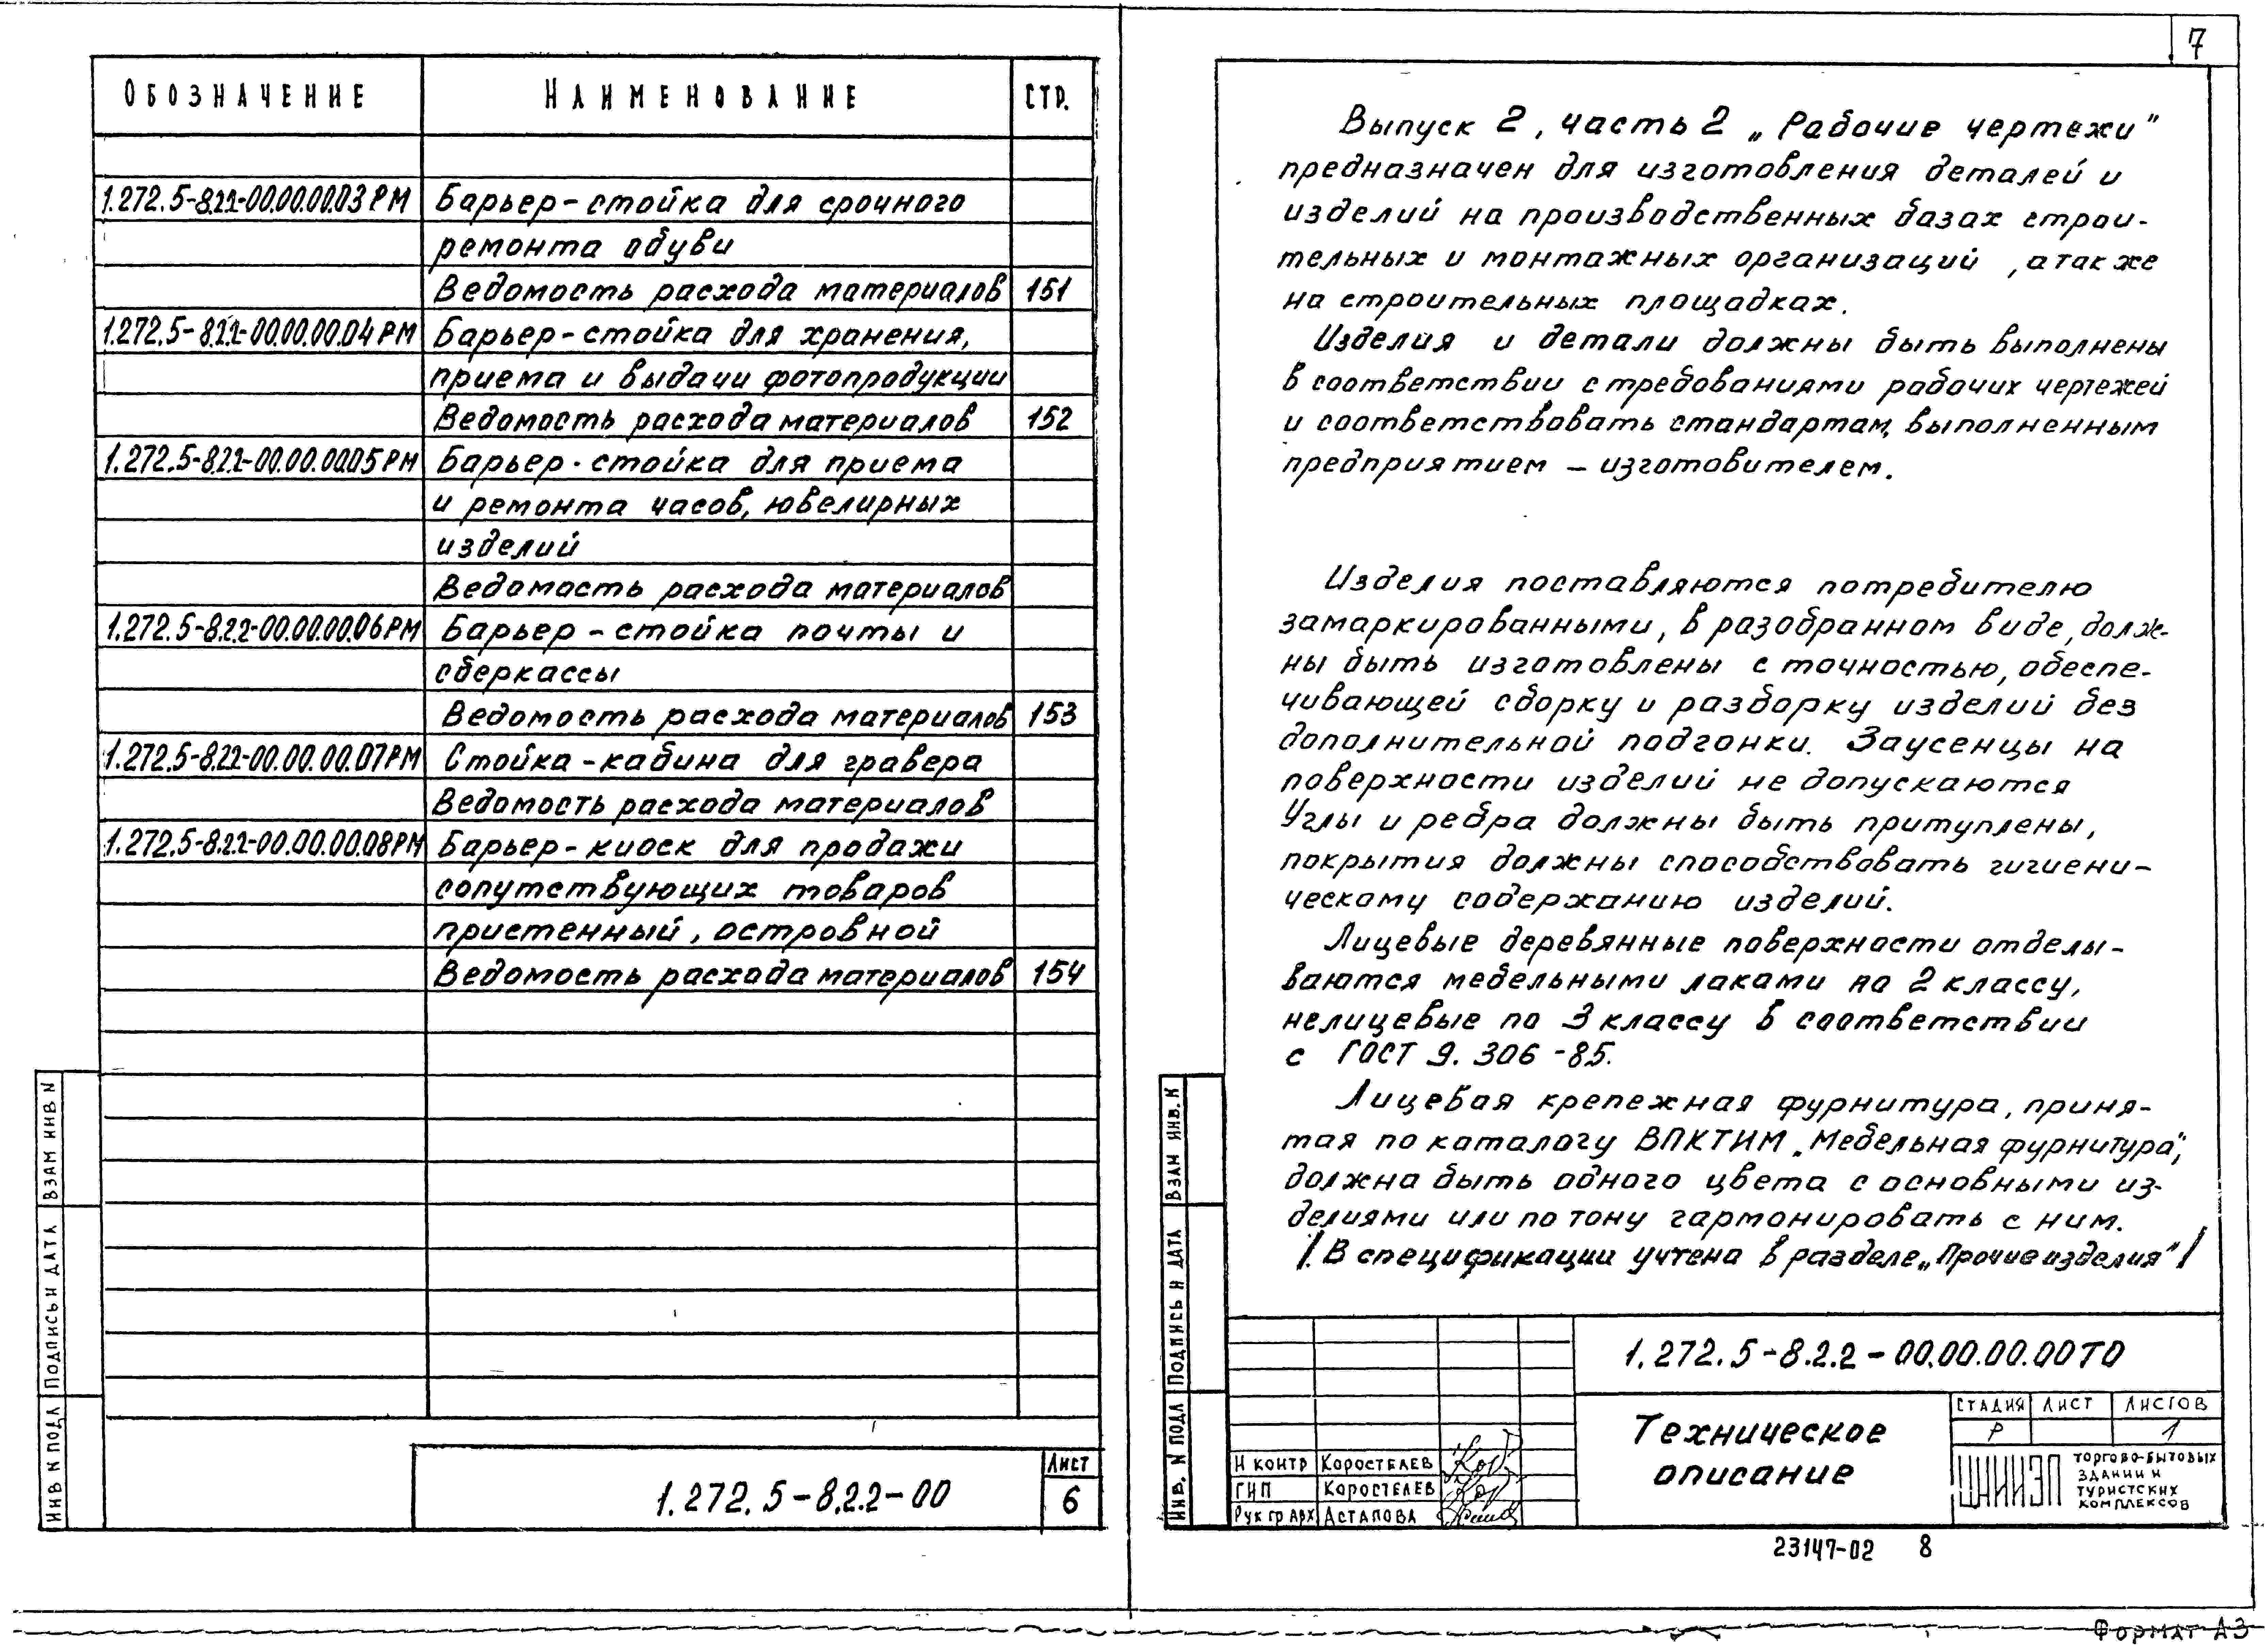 ОБОЗНАЧЕНИЕ НАИМЕНОВАНИЕ СТР.
1.272.5-8.2.2-00.00.00.03РМ Барьер-стойка для срочного
ремонта обуви
Ведомость расхода материалов 151
1.272.5-8.2.2-00.00.00.04РМ Барьер-стойка для хранения,
приема и выдачи фотопродукции
Ведомость расхода материалов 152
1.272.5-8.2.2-00.00.00.05РМ Барьер-стойка для приема
и ремонта часов, ювелирных
изделий
Ведомость расхода материалов
1.272.5-8.2.2-00.00.00.06РМ Барьер-стойка почты и
сберкассы
Ведомость расхода материалов 153
1.272.5-8.2.2-00.00.00.07РМ Стойка-кабина для гравера
Ведомость расхода материалов
1.272.5-8.2.2-00.00.00.08РМ Барьер-киоск для продажи
сопутствующих товаров
пристенный, островной
Ведомость расхода материалов 154
ВЗАМ ИНВ N
ПОДПИСЬ И ДАТА
ИНВ N ПОДЛ
1.272.5-8.2.2-00
ЛИСТ
6
7
Выпуск 2, часть 2 „Рабочие чертежи"
предназначен для изготовления деталей и
изделий на производственных базах строи-
тельных и монтажных организаций, а также
на строительных площадках.
Изделия и детали должны быть выполнены
в соответствии с требованиями рабочих чертежей
и соответствовать стандартам, выполненным
предприятием – изготовителем.
Изделия поставляются потребителю
замаркированными, в разобранном виде, долж-
ны быть изготовлены с точностью, обеспе-
чивающей сборку и разборку изделий без
дополнительной подгонки. Заусенцы на
поверхности изделий не допускаются
Углы и ребра должны быть притуплены,
покрытия должны способствовать гигиени-
ческому содержанию изделий.
Лицевые деревянные поверхности отделы-
ваются мебельными лаками по 2 классу,
нелицевые по 3 классу в соответствии
с ГОСТ 9.306-85.
Лицевая крепежная фурнитура, приня-
тая по каталогу ВПКТИМ „Мебельная фурнитура",
должна быть одного цвета с основными из-
делиями или по тону гармонировать с ним.
/.В спецификации учтена в разделе „Прочие изделия"/
ВЗАМ ИНВ. N
ПОДПИСЬ И ДАТА
ИНВ. N ПОДЛ
1.272.5-8.2.2-00.00.00.00ТО
Техническое
описание
СТАДИЯ ЛИСТ ЛИСТОВ
Р 1
Н КОНТР КОРОСТЕЛЕВ
ГИП КОРОСТЕЛЕВ
РУК ГР АРХ АСТАПОВА
ЦНИИЭП
ТОРГОВО-БЫТОВЫХ
ЗДАНИИ И
ТУРИСТСКИХ
КОМПЛЕКСОВ
23147-02 8
ФОРМАТ А3